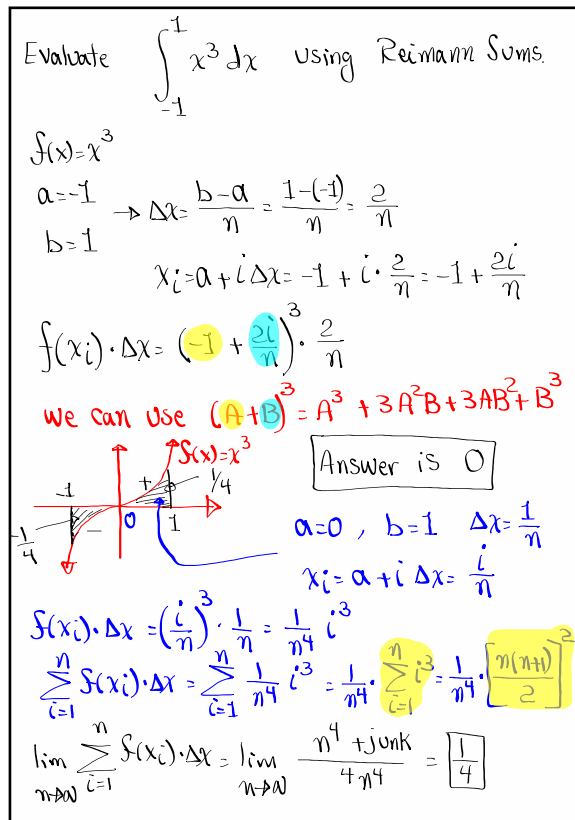 Evaluate ∫_{-1}^{1} x³ dx using Reimann Sums.
f(x)=x³
a=-1
→ Δx= (b-a)/n = (1-(-1))/n = 2/n
b=1
xᵢ=a+iΔx=-1+i·2/n=-1+2i/n
f(xᵢ)·Δx=(-1+2i/n)³·2/n
we can use (A+B)³=A³+3A²B+3AB²+B³
f(x)=x³
-1 + 1/4
Answer is 0
0 1
-1/4 –
a=0, b=1 Δx=1/n
xᵢ=a+iΔx=i/n
f(xᵢ)·Δx=(i/n)³·1/n=1/n⁴ i³
∑_{i=1}^{n} f(xᵢ)·Δx=∑_{i=1}^{n} 1/n⁴ i³=1/n⁴·∑_{i=1}^{n} i³=1/n⁴·[n(n+1)/2]²
lim_{n→∞} ∑_{i=1}^{n} f(xᵢ)·Δx=lim_{n→∞} (n⁴+junk)/(4n⁴) = 1/4